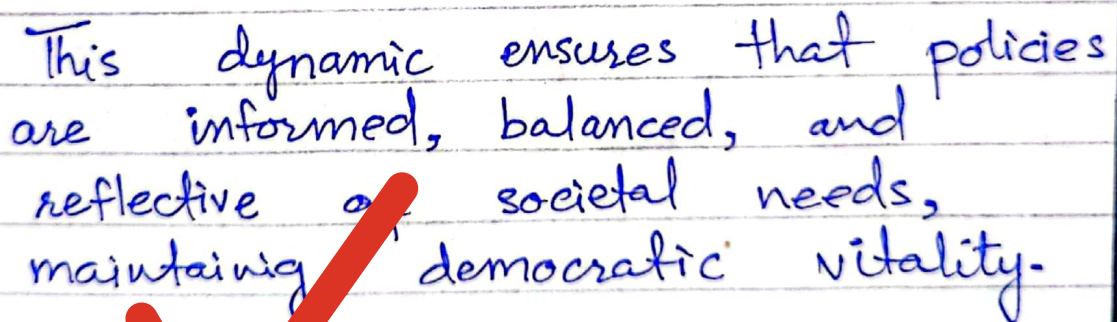 This dynamic ensures that policies
are informed, balanced, and
reflective of societal needs,
maintainig democratic vitality.